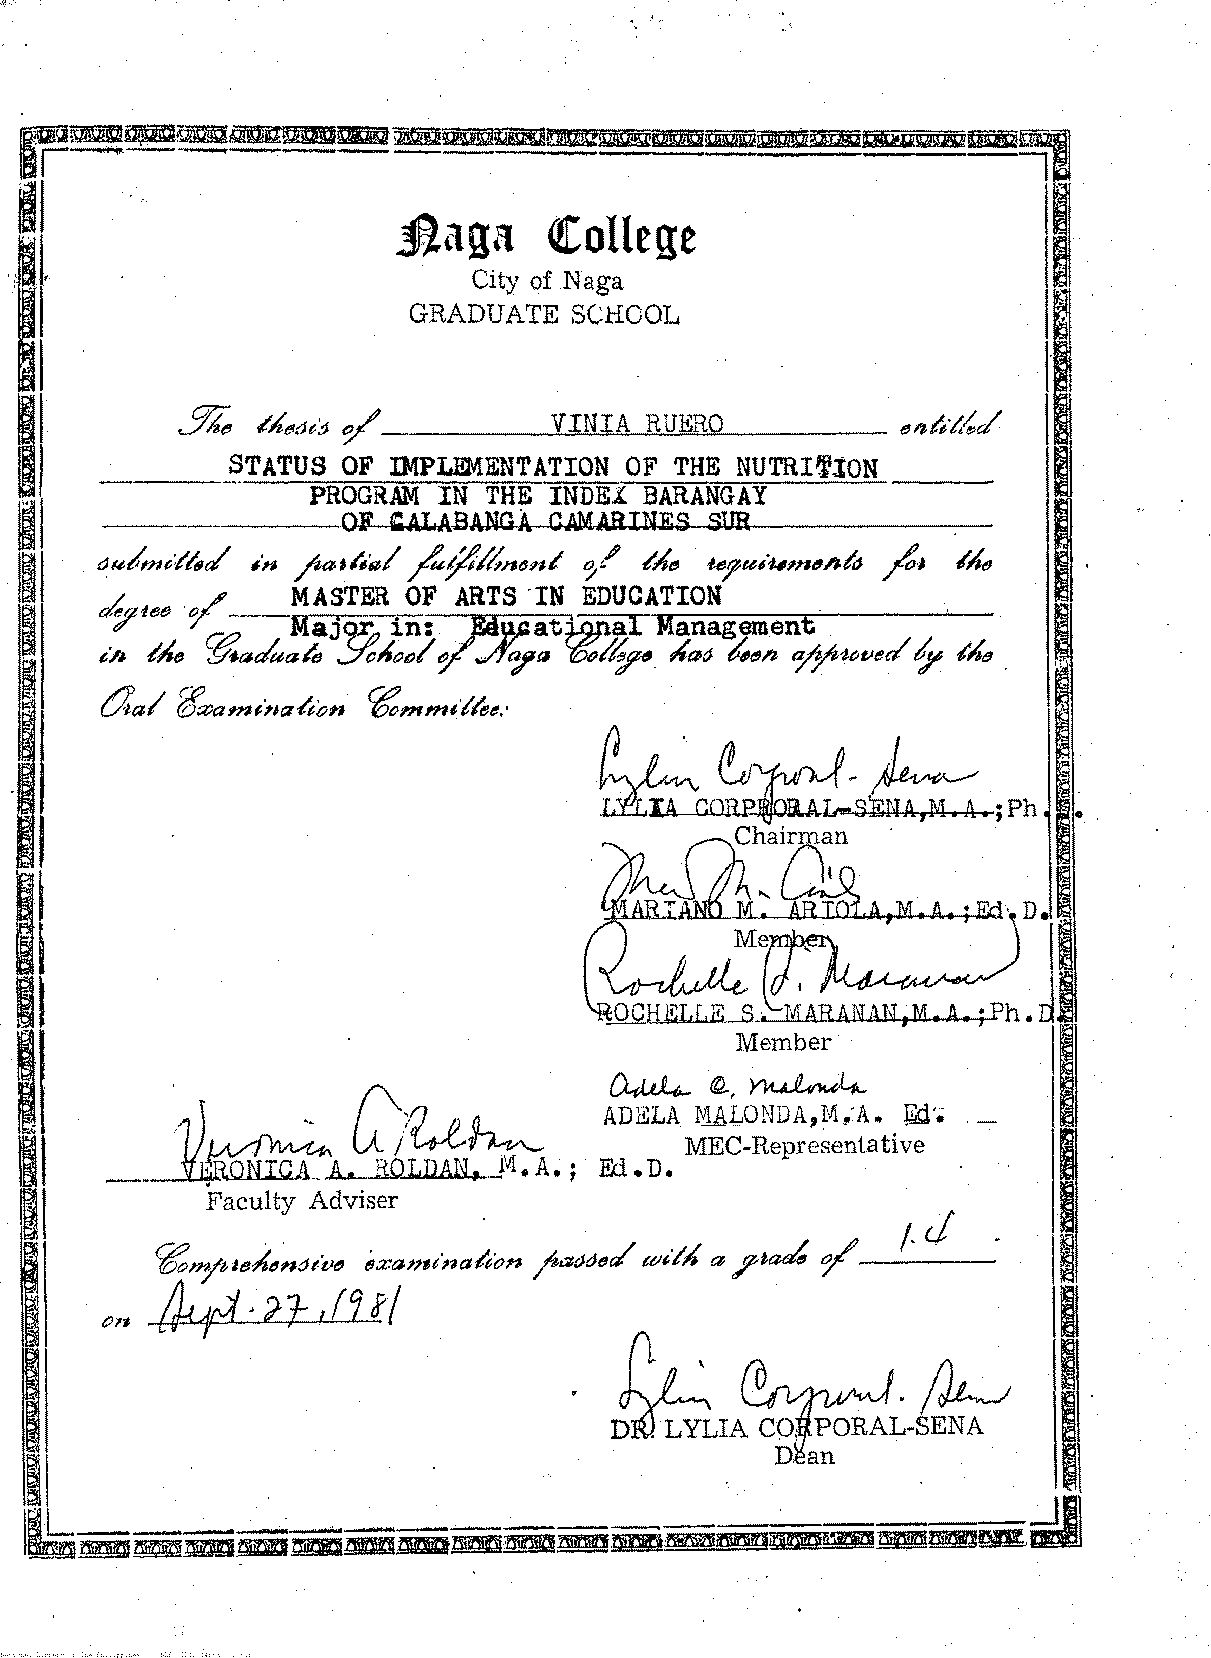 Naga College
City of Naga
GRADUATE SCHOOL
The thesis of VINIA RUERO entitled
STATUS OF IMPLEMENTATION OF THE NUTRITION
PROGRAM IN THE INDEX BARANGAY
OF CALABANGA CAMARINES SUR
submitted in partial fulfillment of the requirements for the
degree of MASTER OF ARTS IN EDUCATION
Major in: Educational Management
in the Graduate School of Naga College has been approved by the
Oral Examination Committee:
Lylia Corporal-Sena
LYLIA CORPPORAL-SENA,M.A.;Ph.D.
Chairman
MARIANO M. ARIOLA,M.A.;Ed.D.
Member
Rochelle S. Maranan
ROCHELLE S. MARANAN,M.A.;Ph.D.
Member
Adela C. Malonda
ADELA MALONDA,M.A. Ed.
MEC-Representative
Veronica A Roldan
VERONICA A. ROLDAN, M.A.; Ed.D.
Faculty Adviser
Comprehensive examination passed with a grade of 1.4
on Sept. 27, 1981
Lylia Corporal-Sena
DR. LYLIA CORPORAL-SENA
Dean